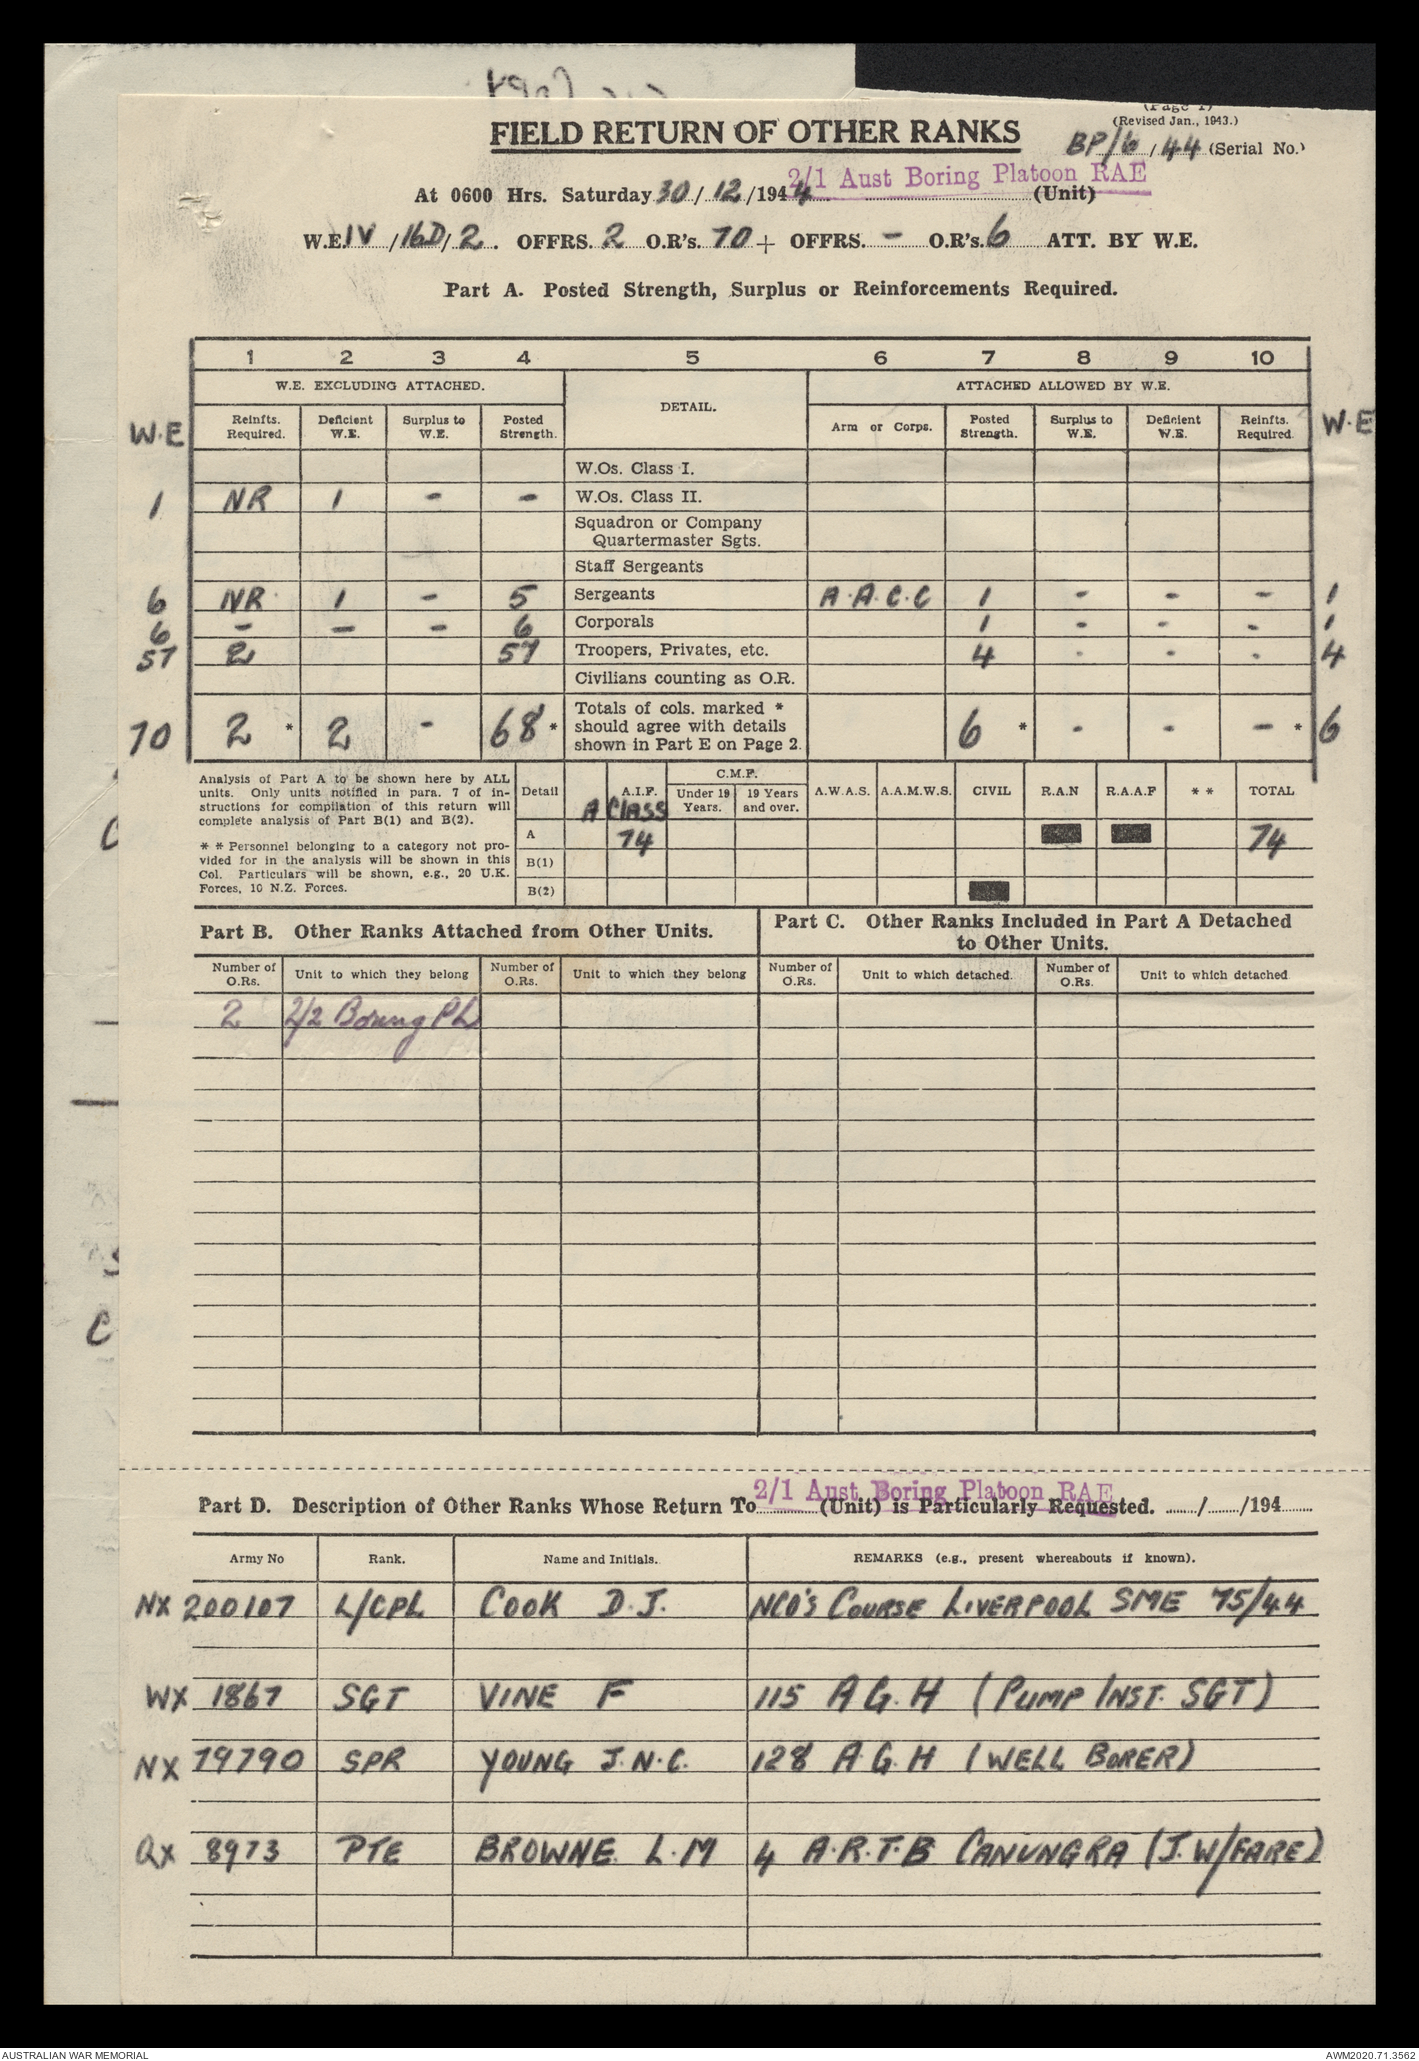 (Page 1)
(Revised Jan., 1943.)
FIELD RETURN OF OTHER RANKS
BP/6/44 (Serial No.)
2/1 Aust Boring Platoon RAE
At 0600 Hrs. Saturday 30/12/1944 (Unit)
W.E. IV /16D/ 2. OFFRS. 2 O.R's. 70 + OFFRS. - O.R's. 6 ATT. BY W.E.
Part A. Posted Strength, Surplus or Reinforcements Required.
1 2 3 4 5 6 7 8 9 10
W.E. EXCLUDING ATTACHED. DETAIL. ATTACHED ALLOWED BY W.E.
W.E Reinfts. Required. Deficient W.E. Surplus to W.E. Posted Strength. Arm or Corps. Posted Strength. Surplus to W.E. Deficient W.E. Reinfts. Required. W.E
W.Os. Class I.
1 NR 1 - - W.Os. Class II.
Squadron or Company
Quartermaster Sgts.
Staff Sergeants
6 NR 1 - 5 Sergeants A.A.C.C 1 - - - 1
6 - - - 6 Corporals 1 - - - 1
57 2 57 Troopers, Privates, etc. 4 - - - 4
Civilians counting as O.R.
70 2 * 2 - 68 * Totals of cols. marked * should agree with details shown in Part E on Page 2. 6 * - - - * 6
Analysis of Part A to be shown here by ALL
units. Only units notified in para. 7 of in-
structions for compilation of this return will
complete analysis of Part B(1) and B(2).
* * Personnel belonging to a category not pro-
vided for in the analysis will be shown in this
Col. Particulars will be shown, e.g., 20 U.K.
Forces, 10 N.Z. Forces.
C.M.F.
Detail A.I.F. Under 19 Years. 19 Years and over. A.W.A.S. A.A.M.W.S. CIVIL R.A.N R.A.A.F * * TOTAL
A CLASS
A 74 74
B(1)
B(2)
Part B. Other Ranks Attached from Other Units.
Part C. Other Ranks Included in Part A Detached
to Other Units.
Number of O.Rs. Unit to which they belong Number of O.Rs. Unit to which they belong Number of O.Rs. Unit to which detached. Number of O.Rs. Unit to which detached
2 2/2 Boring Pl
2/1 Aust Boring Platoon RAE
Part D. Description of Other Ranks Whose Return To (Unit) is Particularly Requested. / /194
Army No Rank. Name and Initials. REMARKS (e.g., present whereabouts if known).
NX 200107 L/CPL COOK D.J. NCO'S COURSE LIVERPOOL SME 75/44
WX 1867 SGT VINE F 115 A G. H (PUMP INST. SGT)
NX 79790 SPR YOUNG J.N.C. 128 A.G.H (WELL BORER)
QX 8973 PTE BROWNE L.M 4 A.R.T.B CANUNGRA (J.W/FARE)
AUSTRALIAN WAR MEMORIAL
AWM2020.71.3562